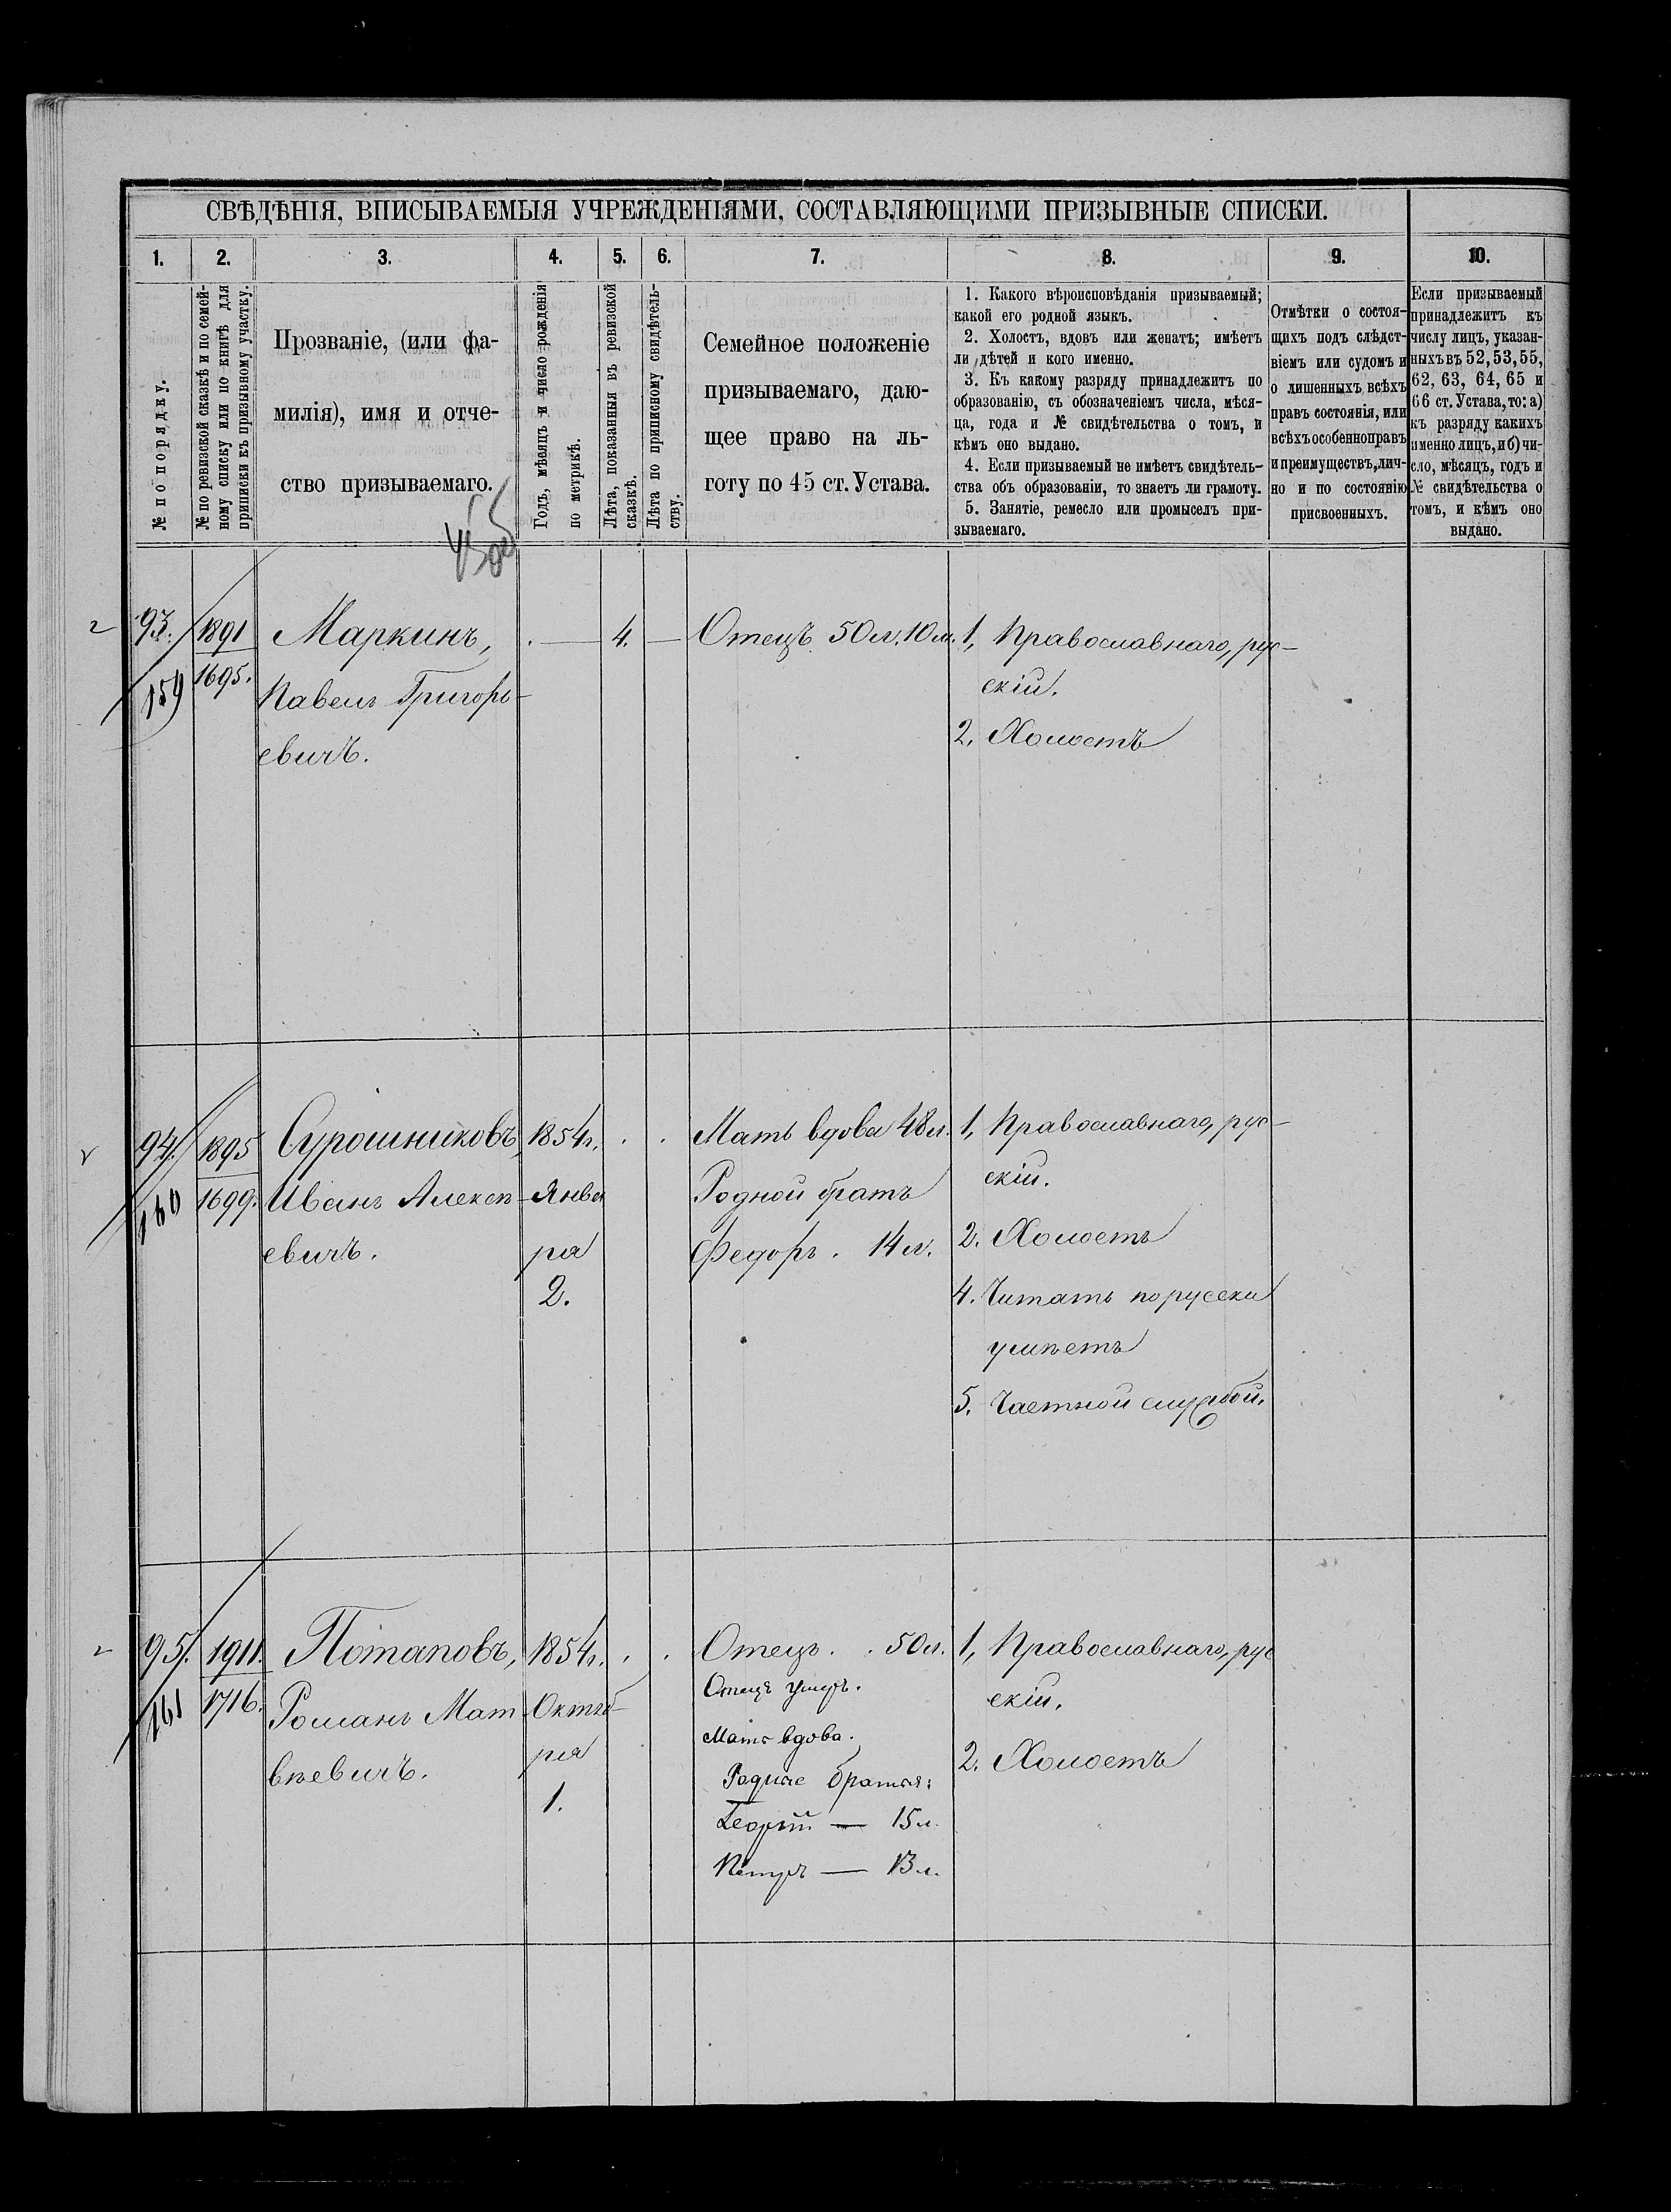 СВѢДѢНІЯ, ВПИСЫВАЕМЫЯ УЧРЕЖДЕНІЯМИ, СОСТАВЛЯЮЩИМИ ПРИЗЫВНЫЕ СПИСКИ.
1.
2.
3.
4.
5.
6.
7.
8.
9.
10.
№ по порядку.
№ по ревизской сказкѣ и по семей-
ному списку или по книгѣ для
приписки къ призывному участку.
Прозваніе, (или фа-
милія), имя и отче-
ство призываемаго.
Годъ, мѣсяцъ и число рожденія
по метрикѣ.
Лѣта, показанныя въ ревизской
сказкѣ.
Лѣта по приписному свидѣтель-
ству.
Семейное положеніе
призываемаго, даю-
щее право на ль-
готу по 45 ст. Устава.
1. Какого вѣроисповѣданія призываемый;
какой его родной языкъ.
2. Холостъ, вдовъ или женатъ; имѣетъ
ли дѣтей и кого именно.
3. Къ какому разряду принадлежитъ по
образованію, съ обозначеніемъ числа, мѣся-
ца, года и № свидѣтельства о томъ, и
кѣмъ оно выдано.
4. Если призываемый не имѣетъ свидѣтель-
ства объ образованіи, то знаетъ ли грамоту.
5. Занятіе, ремесло или промыселъ при-
зываемаго.
Отмѣтки о состоя-
щихъ подъ слѣдст-
віемъ или судомъ и
о лишенныхъ всѣхъ
правъ состоянія, или
всѣхъ особенно правъ
и преимуществъ, лич-
но и по состоянію
присвоенныхъ.
Если призываемый
принадлежитъ къ
числу лицъ, указан-
ныхъ въ 52, 53, 55,
62, 63, 64, 65 и
66 ст. Устава, то: а)
къ разряду какихъ
именно лицъ, и б) чи-
сло, мѣсяцъ, годъ и
№ свидѣтельства о
томъ, и кѣмъ оно
выдано.
93.
159
1891
1695.
Маркинъ,
Павелъ Григорь-
евичъ.
4.
Отецъ 50 л. 10 м.
1, Православнаго, рус-
скій.
2. Холостъ
94.
160
1895
1699.
Сурошниковъ,
Иванъ Алексѣ-
евичъ.
1854 г.
Янва
ря
2.
Мать вдова 48 л.
Родной братъ
Федоръ. 14 л.
1, Православнаго, рус-
скій.
2. Холостъ
4. Читать порусски
умѣетъ
5. Частной службой.
95.
161
1911.
1716.
Потаповъ,
Романъ Мат
вѣевичъ.
1854 г.
Октяб-
ря
1.
Отецъ. . 50 л.
Отецъ умеръ.
Мать вдова.
Родные братья:
Георгій — 15 л.
Петръ — 13 л.
1, Православнаго, рус
скій.
2. Холостъ